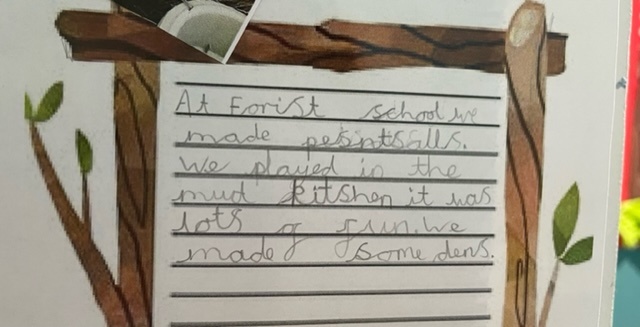 At Forist school we
made
We played in the
mud kitshen it was
lots of fun. We
made some dens.